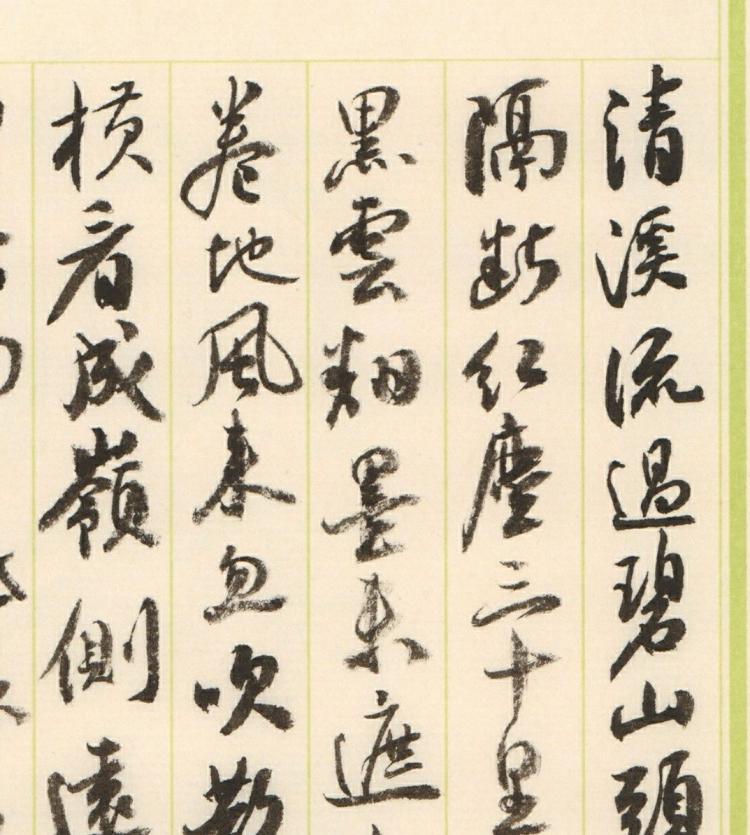 清溪流過碧山頭
隔斷紅塵三十里
黑雲翻墨未遮
卷地風來忽吹散
橫看成嶺側遠